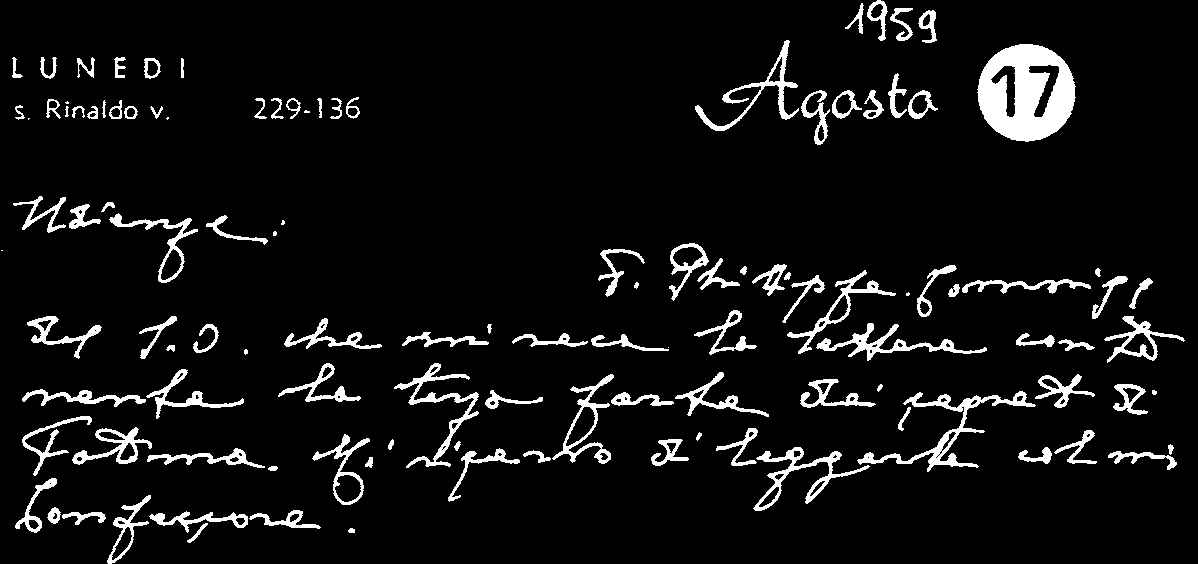 1959
LUNEDI Agosto 17
s. Rinaldo v. 229-136
Udienze:
F. Philippe. Commiss
del S.O. che mi reca la lettera conte
nente la terza parte dei segreti di
Fatima. Mi riservo di leggerla col mio
Confessore.